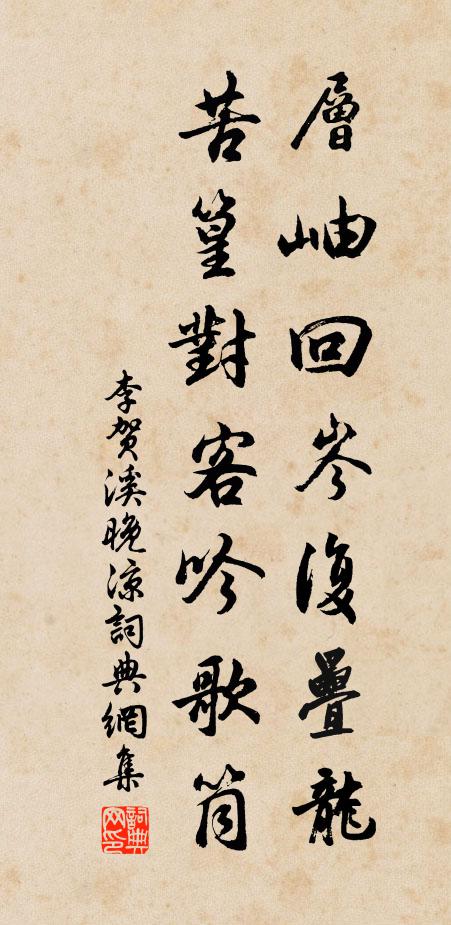 層岫回岑復疊龍
苦篁對客吟歌筒
李贺溪晚凉詞典網集
詞典网印